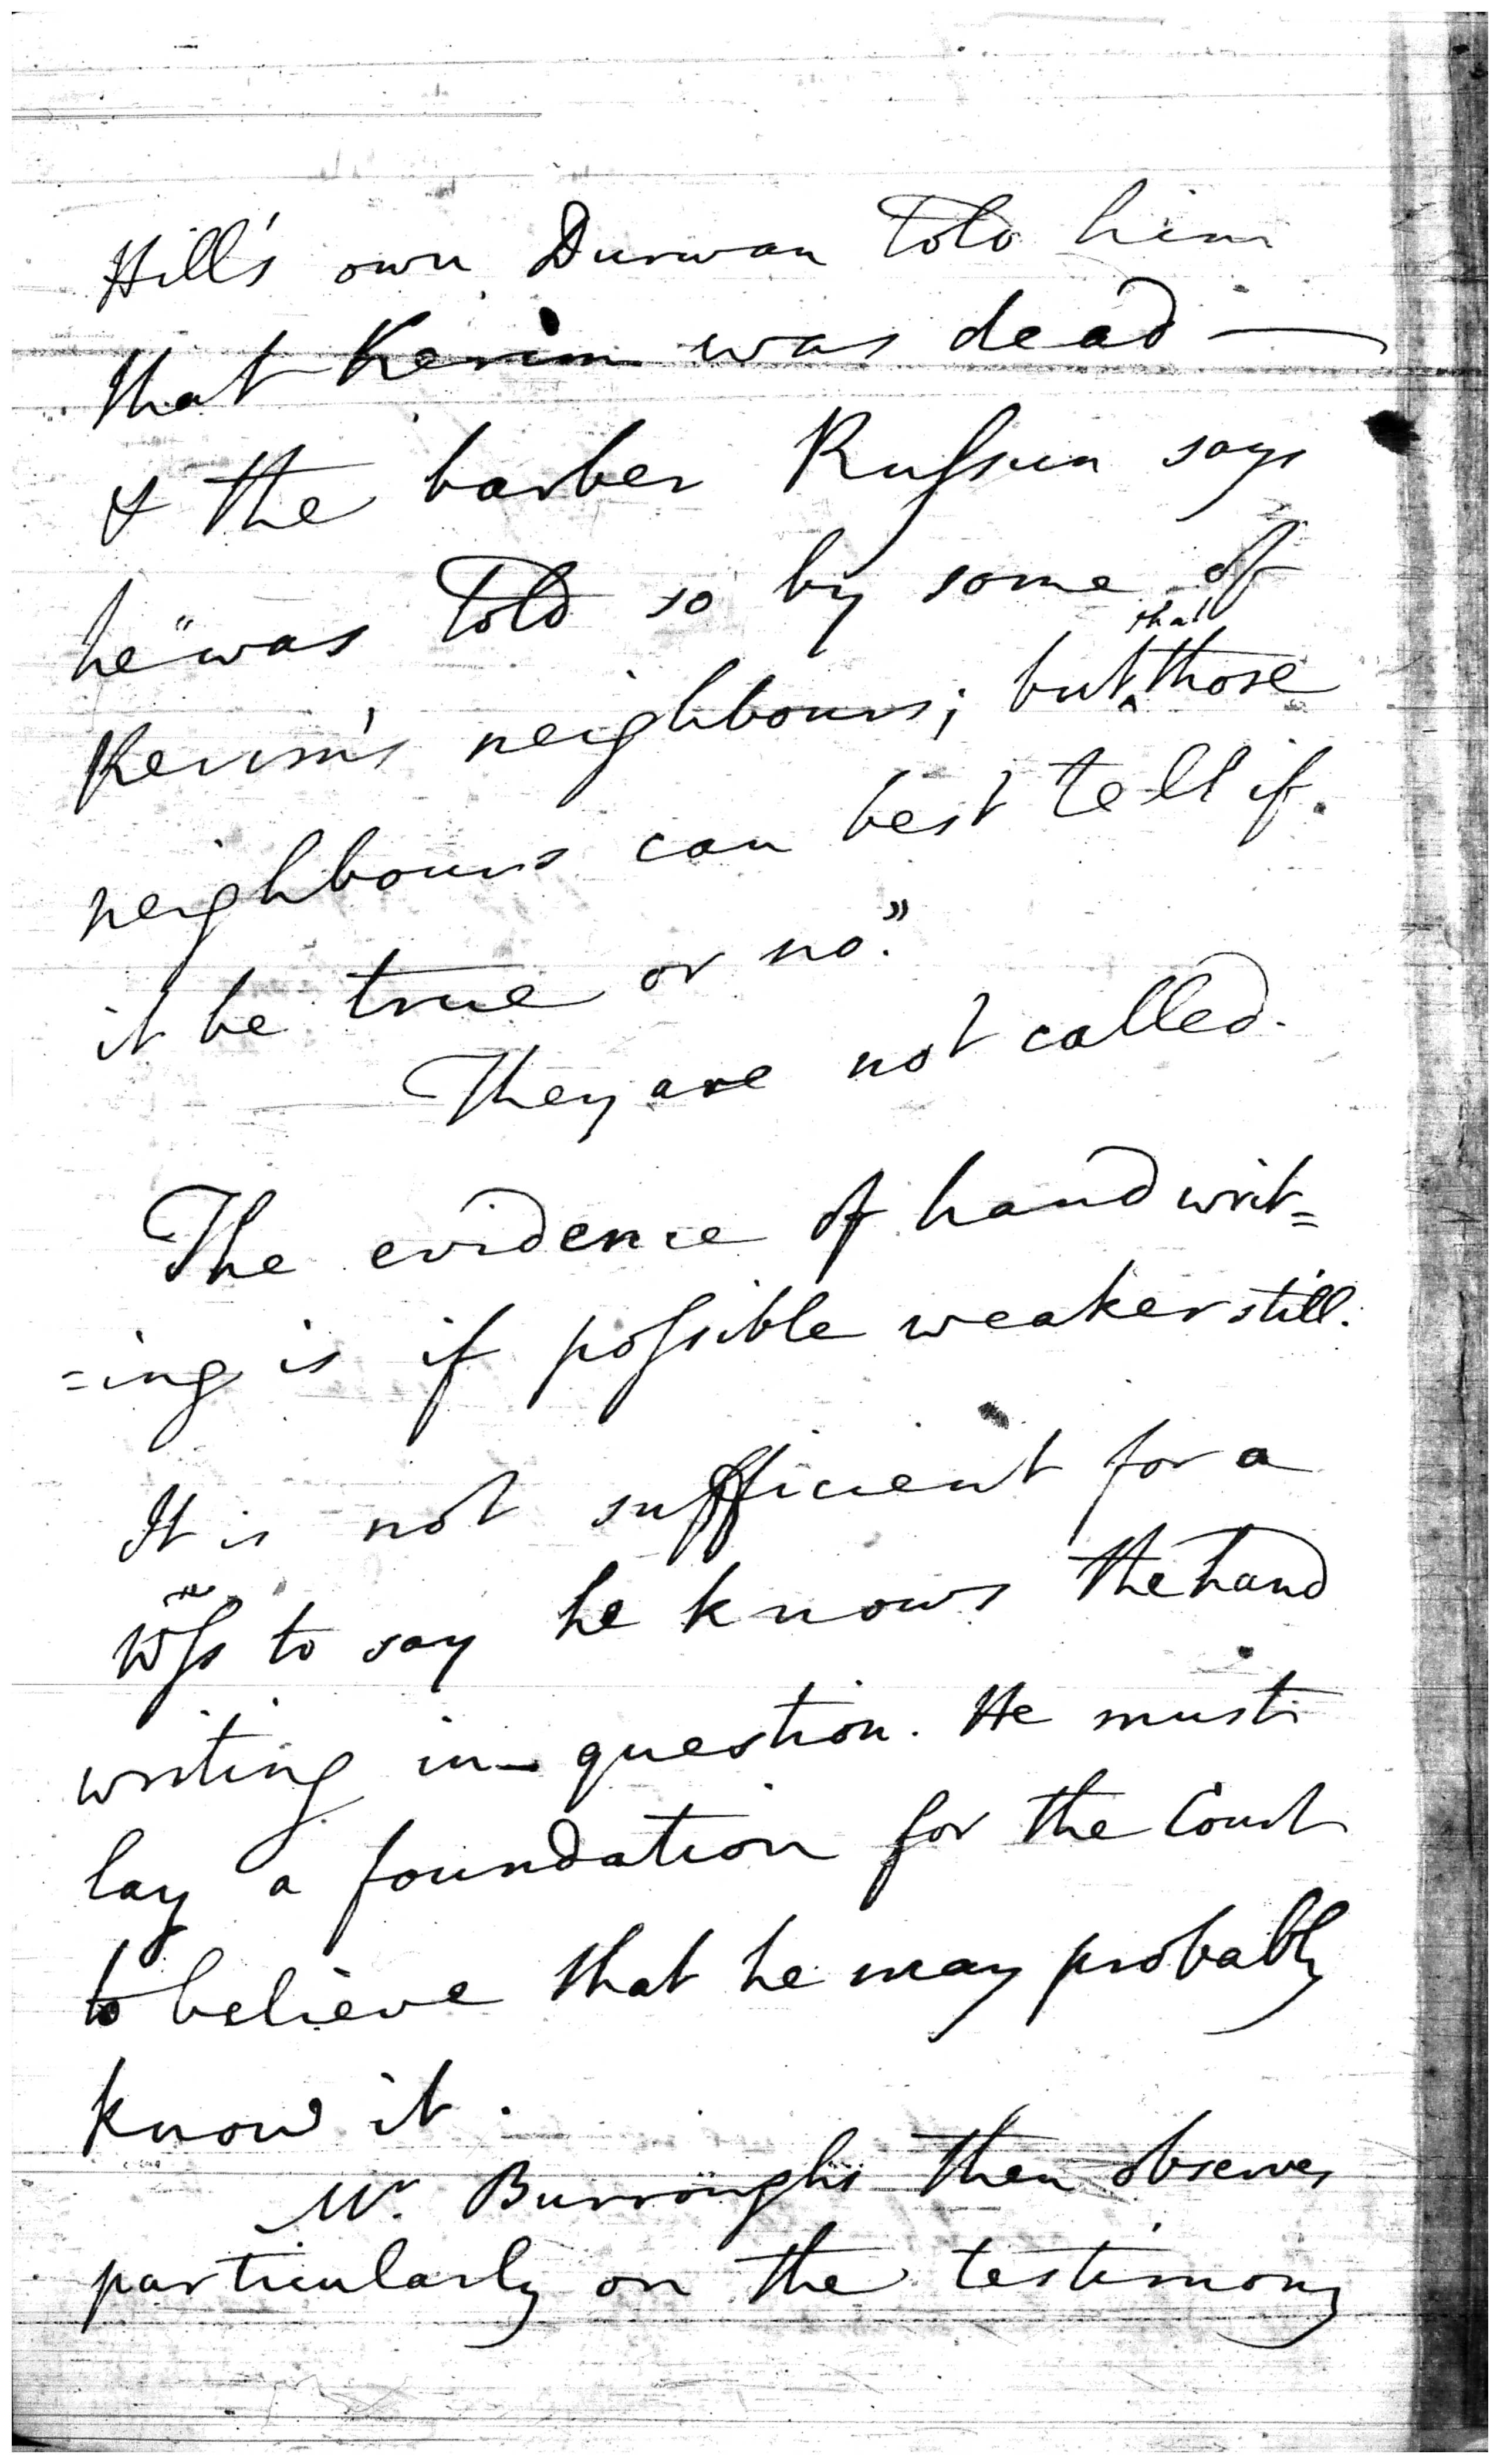 Hill's own Durwan told him
that Kerim was dead —
& the barber Russun says
he "was told so by some of
Kerim's neighbours; but that those
neighbours can best tell if
it be true or no."
They are not called.
The evidence of hand writ=
=ing is if possible weaker still.
It is not sufficient for a
Wss to say he knows the hand
writing in question. He must
lay a foundation for the Court
to believe that he may probably
know it.
Mr. Burroughs then observes
particularly on the testimony